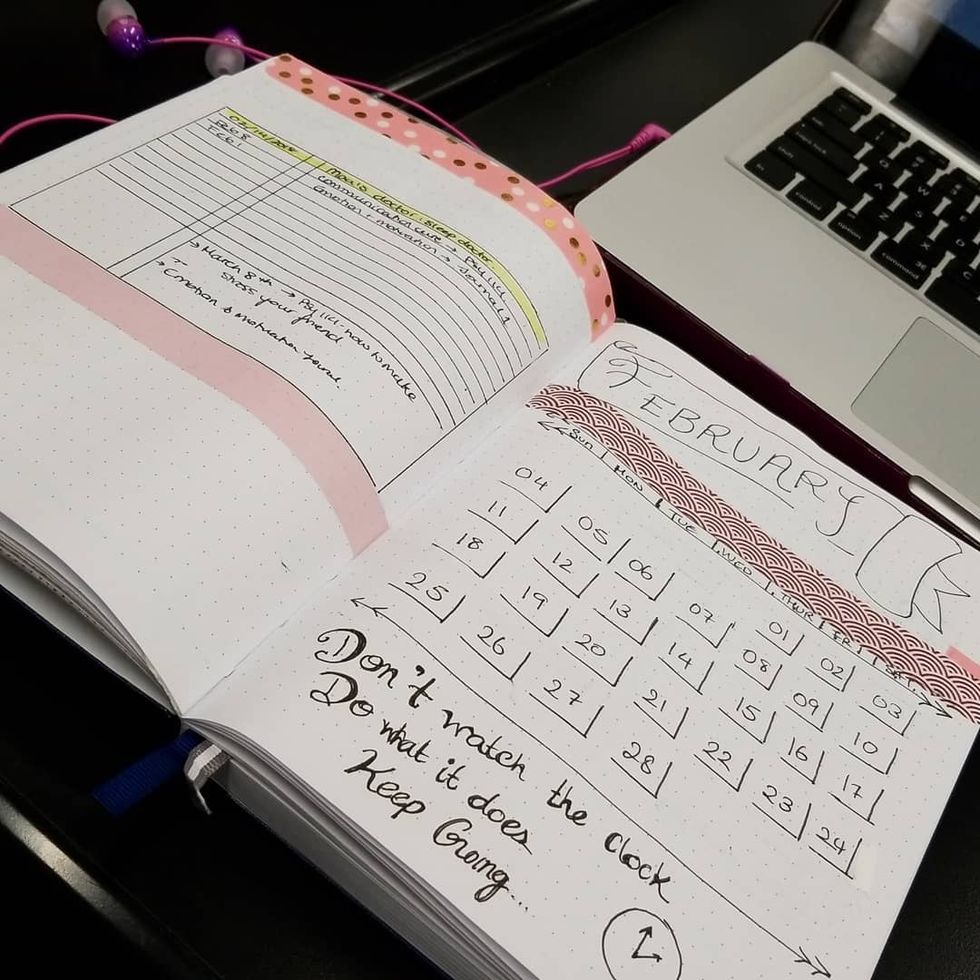 Feb 8
Mom's doctor: sleep doctor
communication cure → Psy 1101
emotion + motivation → Journal 1
→ March 8th → Psy 1101: how to make
stress your friend
→ Emotion & Motivation
FEBRUARY
SUN | MON | TUE | WED | THUR | FRI | SAT
01 02 03
04 05 06 07 08 09 10
11 12 13 14 15 16 17
18 19 20 21 22 23 24
25 26 27 28
Don't watch the clock
Do what it does
Keep Going...
control
option
command